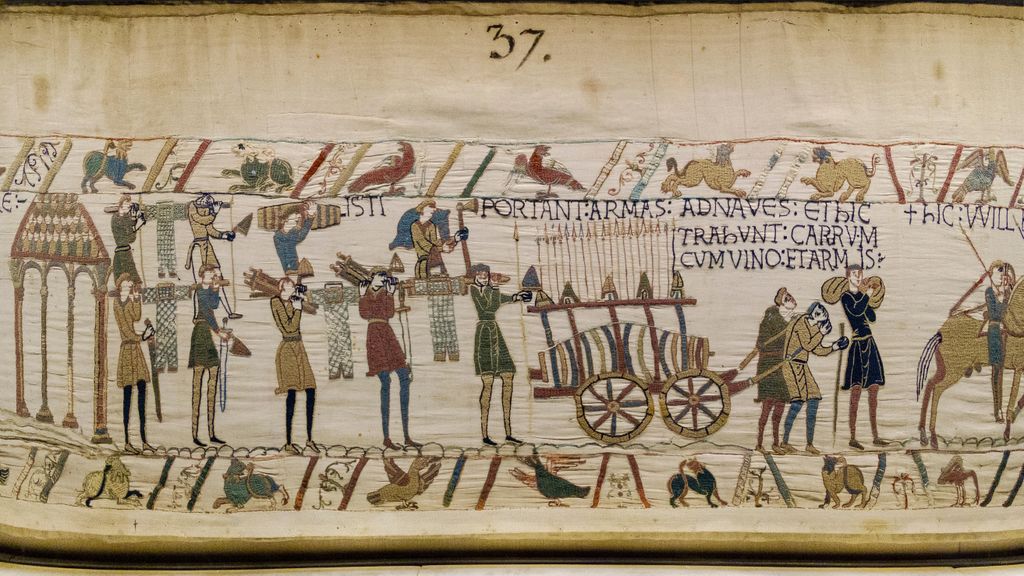 37.
E:
ISTI PORTANT:ARMAS: ADNAVES: EThIC
TRAhVNT: CARRVM
CVMVINO:ETARMIS:
+hIC:WILL